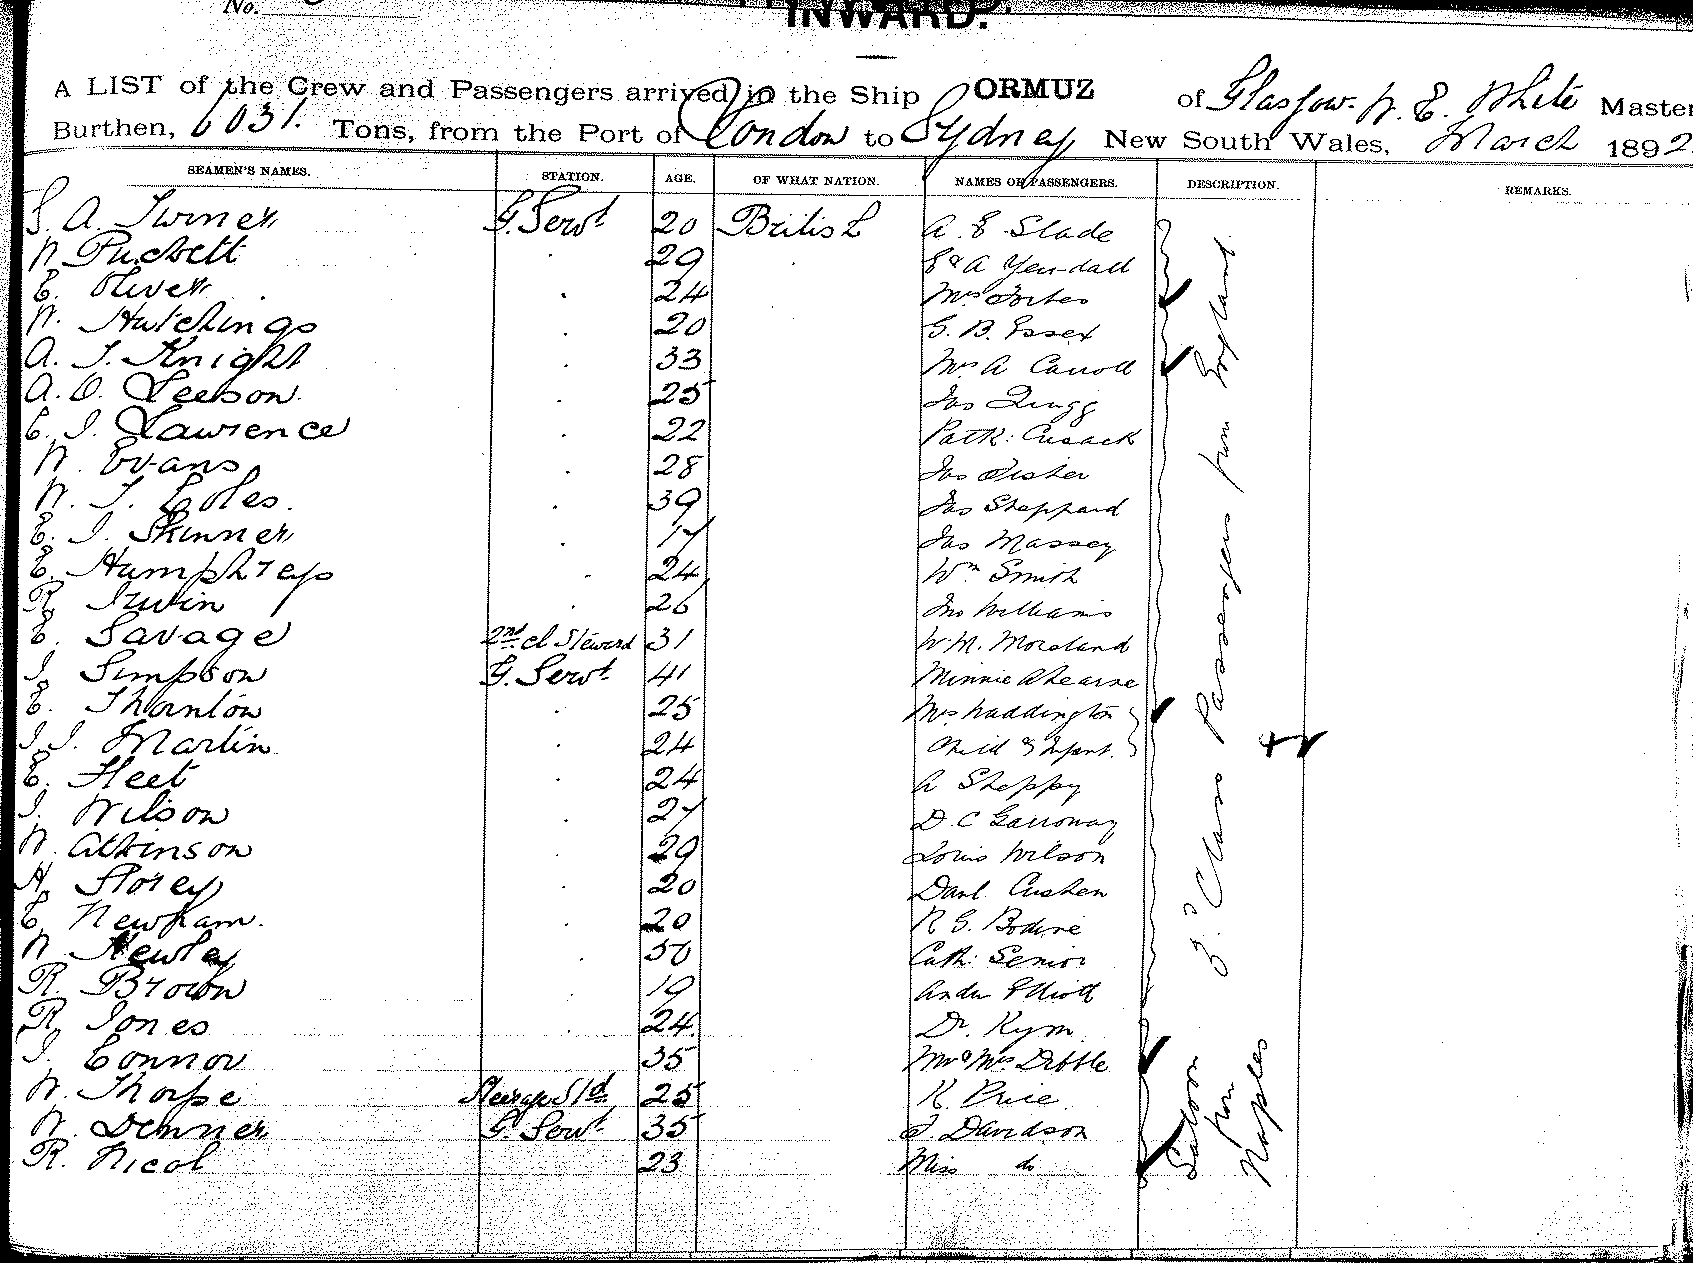 No.
INWARD.
A LIST of the Crew and Passengers arrived in the Ship ORMUZ of Glasgow. W. E. White Master
Burthen, 6031. Tons, from the Port of London to Sydney, New South Wales, March 1892
SEAMEN'S NAMES. STATION. AGE. OF WHAT NATION. NAMES OF PASSENGERS. DESCRIPTION. REMARKS.
S. A. Turner G. Servt 20 British A. E Slade
W Puckett 29 E & A Yendall
E. Oliver 24 Mrs Forbes
W. Hutchings 20 G. B. Essex
A. J. Knight 33 Mrs A Carroll
A. O. Leeson 25 Jas
C. J. Lawrence 22 Patk: Cusack
W. Evans 28 Jas Fisher
W. J. Coles. 39 Jas Sheppard
E. J. Skinner 17 Jas Massey
E. Humphreys 24 Wm Smith
R. Irwin 26 Jno Williams
E. Savage 2nd cl Steward 31 W. M. Moreland
J. Simpson G. Servt 41 Minnie Ahearne
E. Thornton 25 Mrs Waddington
J. J. Martin 24 Child & Infant.
E. Fleet 24 A Sheppy
J. Wilson 27 D. C Garroway
W. Atkinson 29 Louis Wilson
H. Storey 20 Danl Cushen
C. Newham. 20 R G. Bodine
W Newley 50 Cath: Senior
R. Brown 19 Andw Elliott
R. Jones 24 Dr. Kym
J. Connor 35 Mr & Mrs Dibble
W. Thorpe Steerage Std 25 K. Price
W. Denner G. Servt 35 J Davidson
R. Nicol 23 Miss do
3rd Class Passengers from England
Saloon
from
Naples